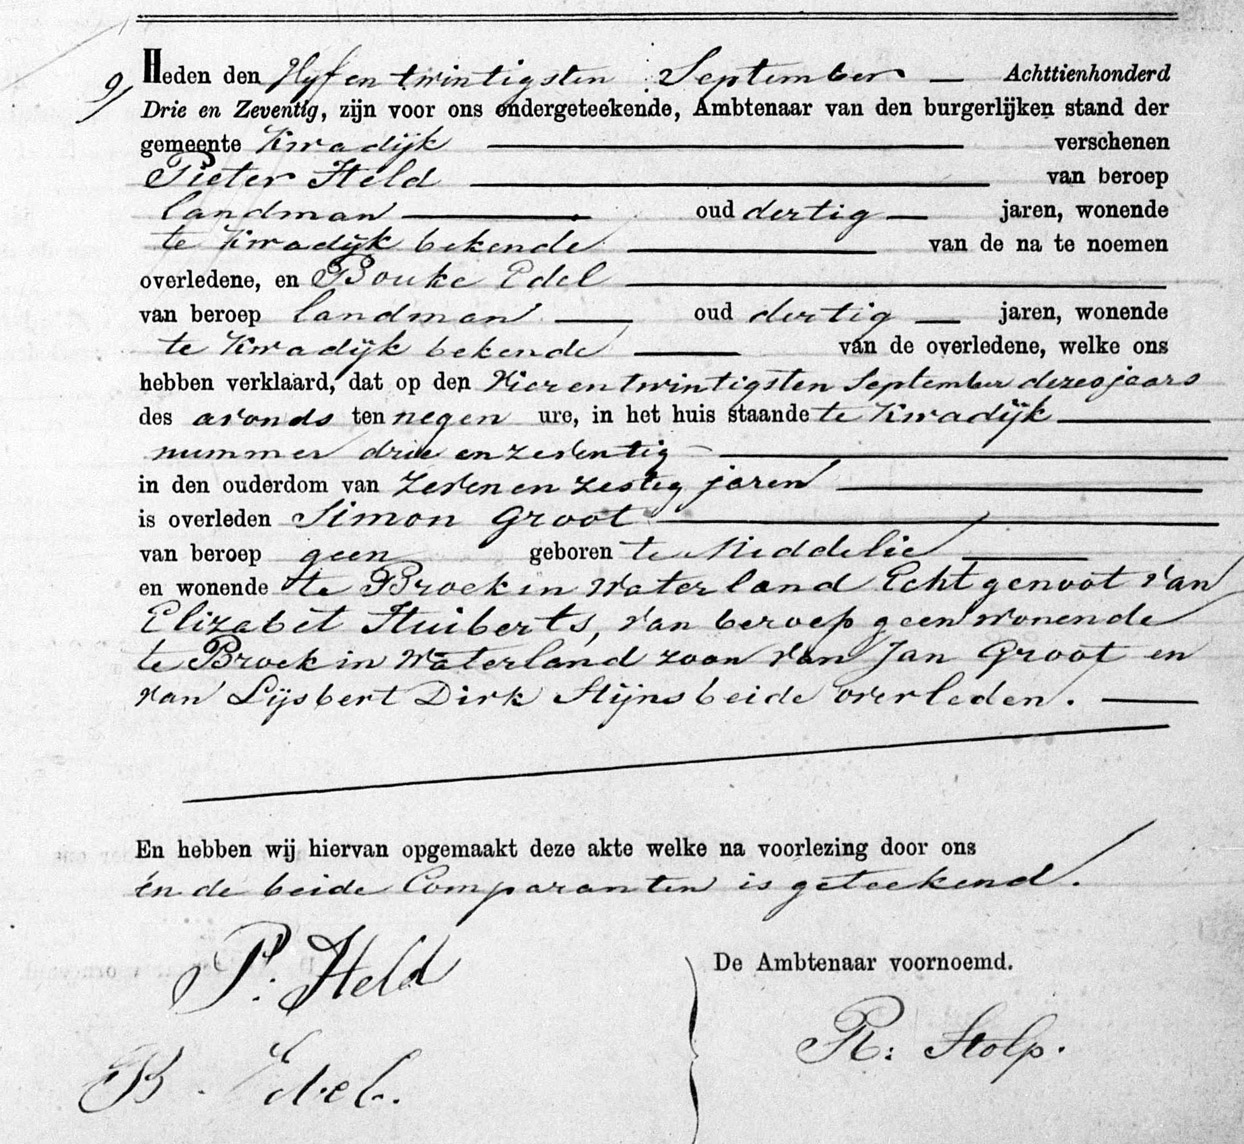 9/
Heden den Vyf en twintigsten September — Achttienhonderd
Drie en Zeventig, zijn voor ons ondergeteekende, Ambtenaar van den burgerlijken stand der
gemeente Kwadijk verschenen
Pieter Held van beroep
landman oud dertig jaren, wonende
te Kwadijk bekende van de na te noemen
overledene, en Bouke Edel
van beroep landman oud dertig jaren, wonende
te Kwadijk bekende van de overledene, welke ons
hebben verklaard, dat op den Vier en twintigsten September dezes jaars
des avonds ten negen ure, in het huis staande te Kwadijk
nummer drie en zeventig
in den ouderdom van zeven en zestig jaren
is overleden Simon Groot
van beroep geen geboren te Middelie
en wonende te Broek in Waterland Echtgenoot van
Elizabet Huiberts, van beroep geen wonende
te Broek in Waterland zoon van Jan Groot en
van Lijsbert Dirk Stijns beide overleden.
En hebben wij hiervan opgemaakt deze akte welke na voorlezing door ons
en de beide Comparanten is geteekend.
P. Held
De Ambtenaar voornoemd.
R: Stolp.
B. Edel.